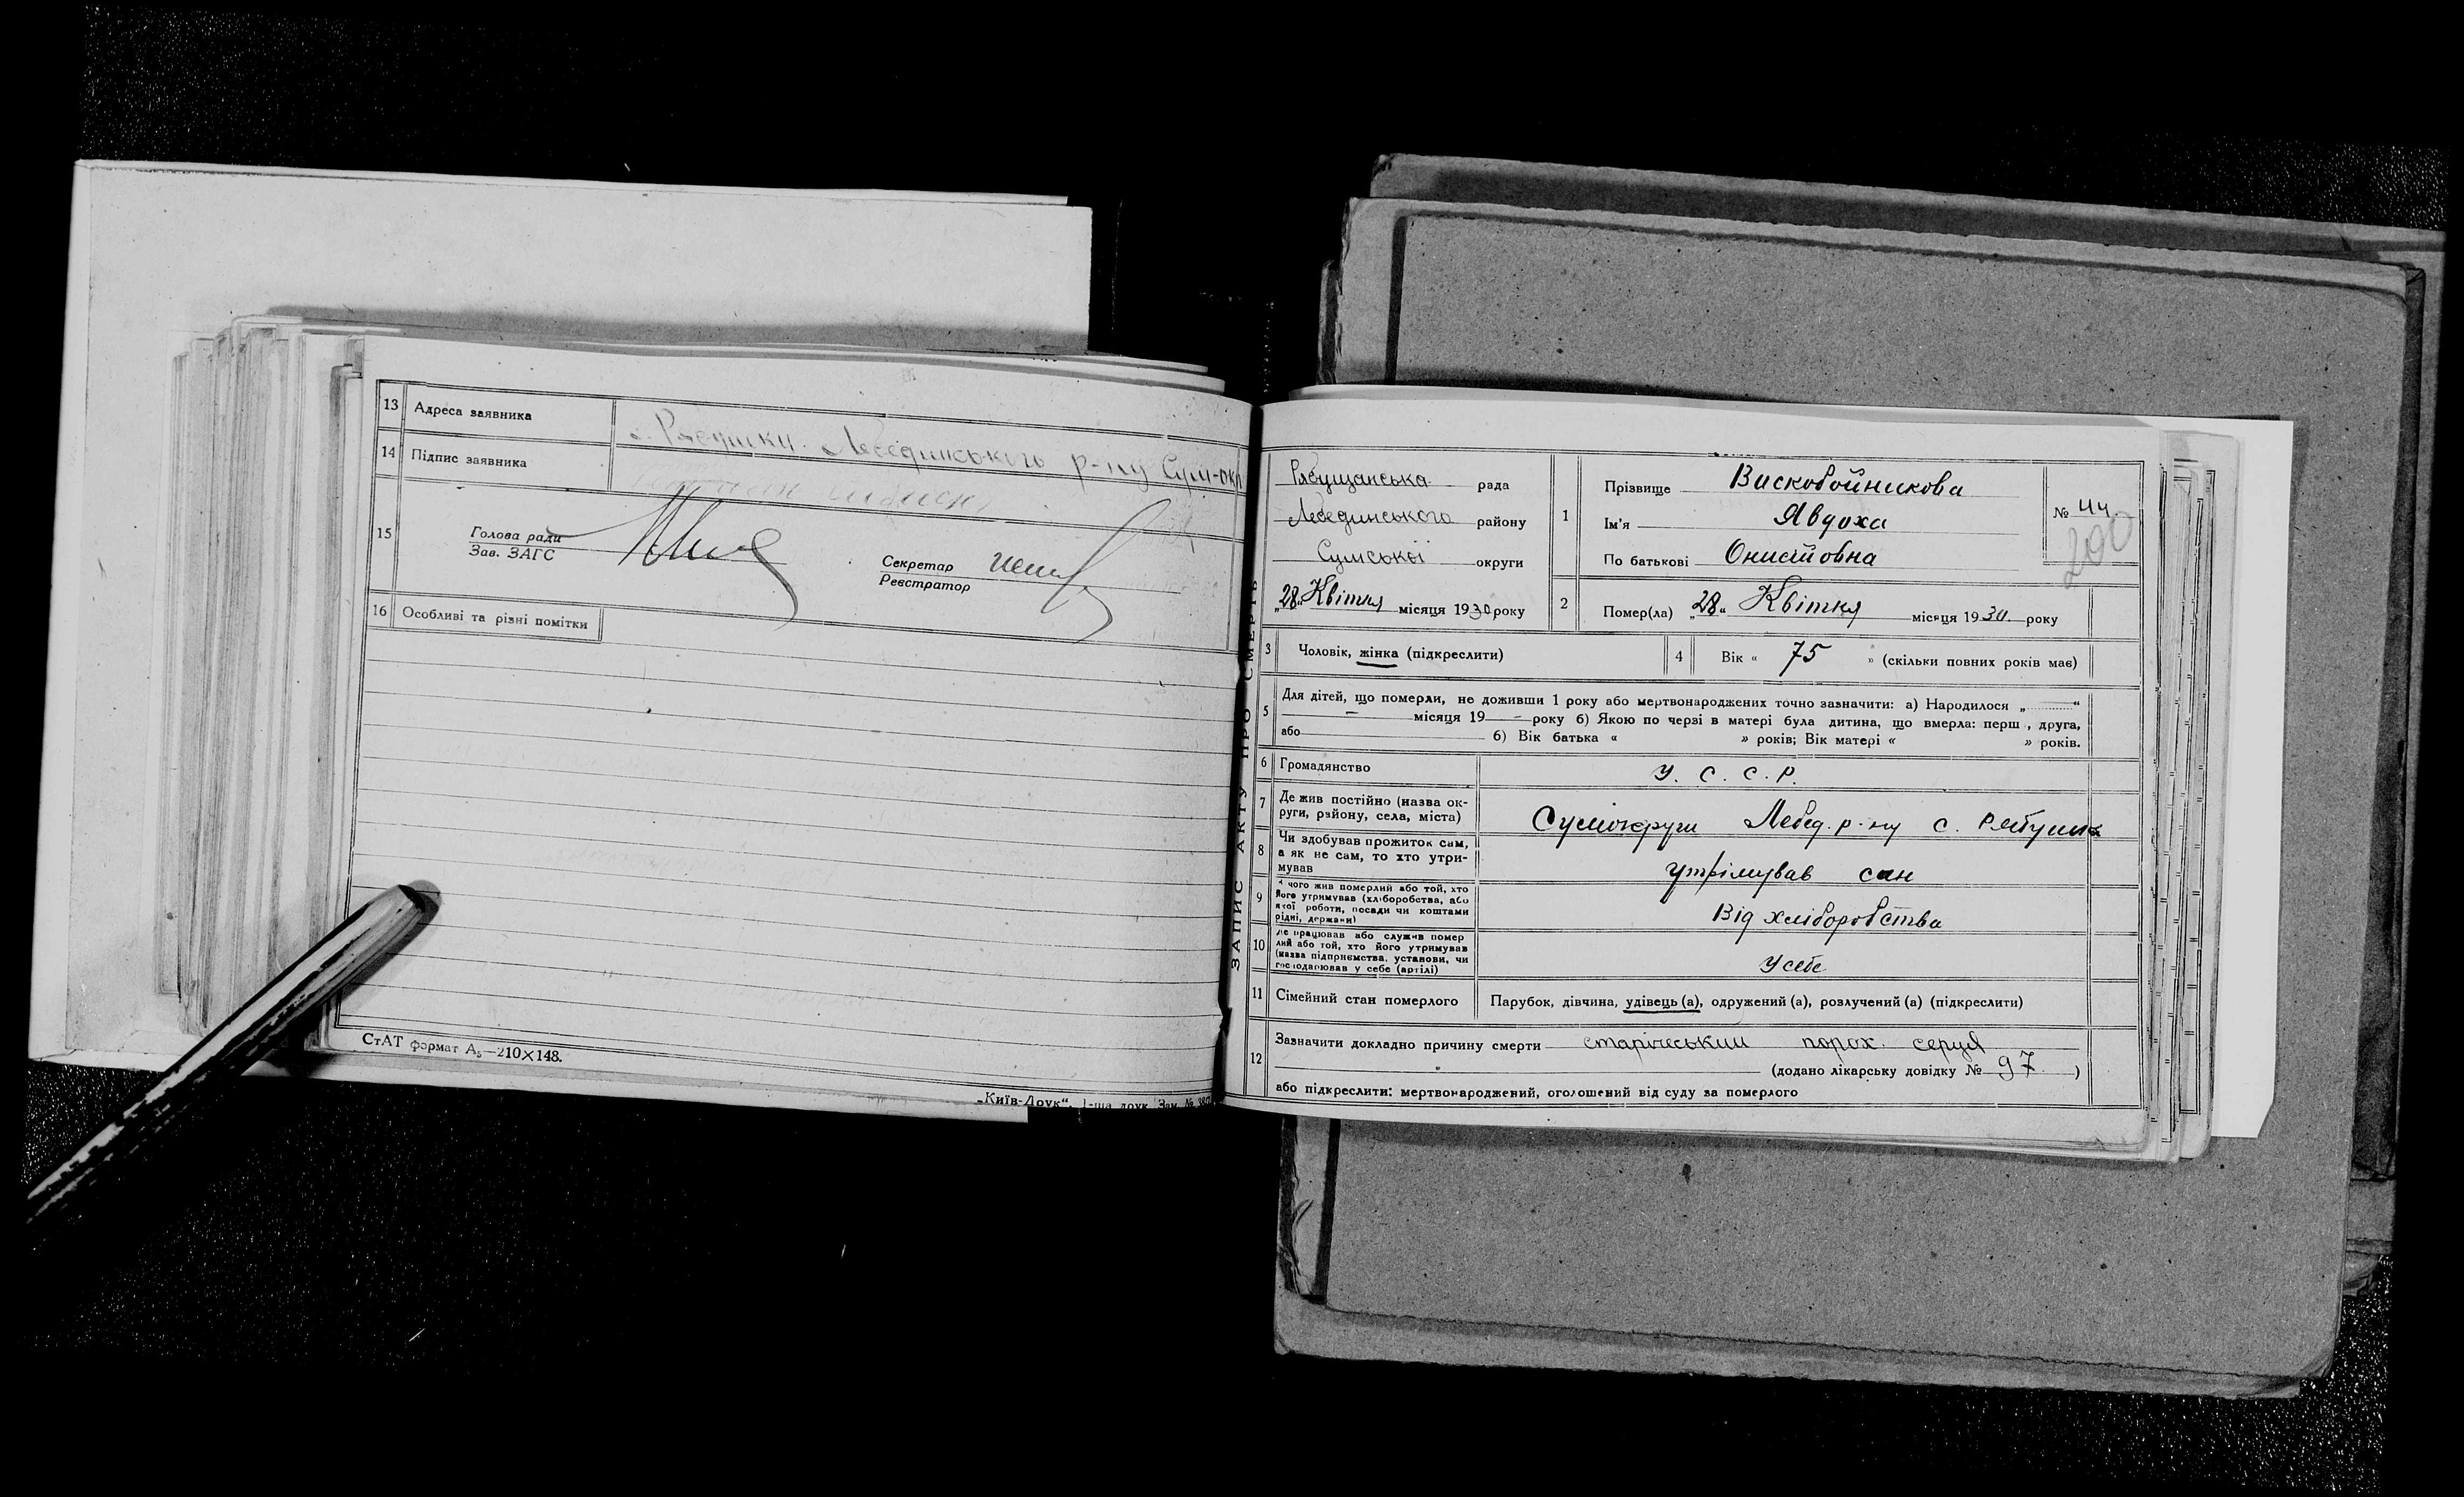 13 Адреса заявника с. Рябушки. Лебединського р-ну Сум-окр
14 Підпис заявника
15 Голова ради
Зав. ЗАГС
Секретар
Реєстратор
16 Особливі та різні помітки
СтАТ формат А₅—210×148.
„Київ-Друк“, 1-ша друк. Зам. №
ЗАПИС АКТУ ПРО СМЕРТЬ
Рябущанська рада
Лебединського району
Сумської округи
„28“ Квітня місяця 1930 року
1 Прізвище Вискобойникова
Ім'я Явдоха
По батькові Онисійовна
№ 44.
200
2 Помер(ла) „28“ Квітня місяця 1930. року
3 Чоловік, жінка (підкреслити)
4 Вік « 75 » (скільки повних років має)
5 Для дітей, що померли, не доживши 1 року або мертвонароджених точно зазначити: а) Народилося „..........“
— місяця 19 — року б) Якою по черзі в матері була дитина, що вмерла: перш , друга,
або 6) Вік батька « » років; Вік матері « » років.
6 Громадянство У. С. С. Р.
7 Де жив постійно (назва ок-
руги, району, села, міста) Сумокруги Лебед. р-ну с. Рябушк
8 Чи здобував прожиток сам,
а як не сам, то хто утри-
мував утрімував син
9 чого жив померлий або той, хто
його утримував (хліборобства, або
якої роботи, посади чи коштами
рідні, держави) Від хліборобства
10 Де працював або служив помер
лий або той, хто його утримував
(назва підприємства, установи, чи
господарював у себе (артілі) У себе
11 Сімейний стан померлого Парубок, дівчина, удівець (а), одружений (а), розлучений (а) (підкреслити)
12 Зазначити докладно причину смерти старічеський порох. серця
(додано лікарську довідку № 97 )
або підкреслити: мертвонароджений, оголошений від суду за померлого